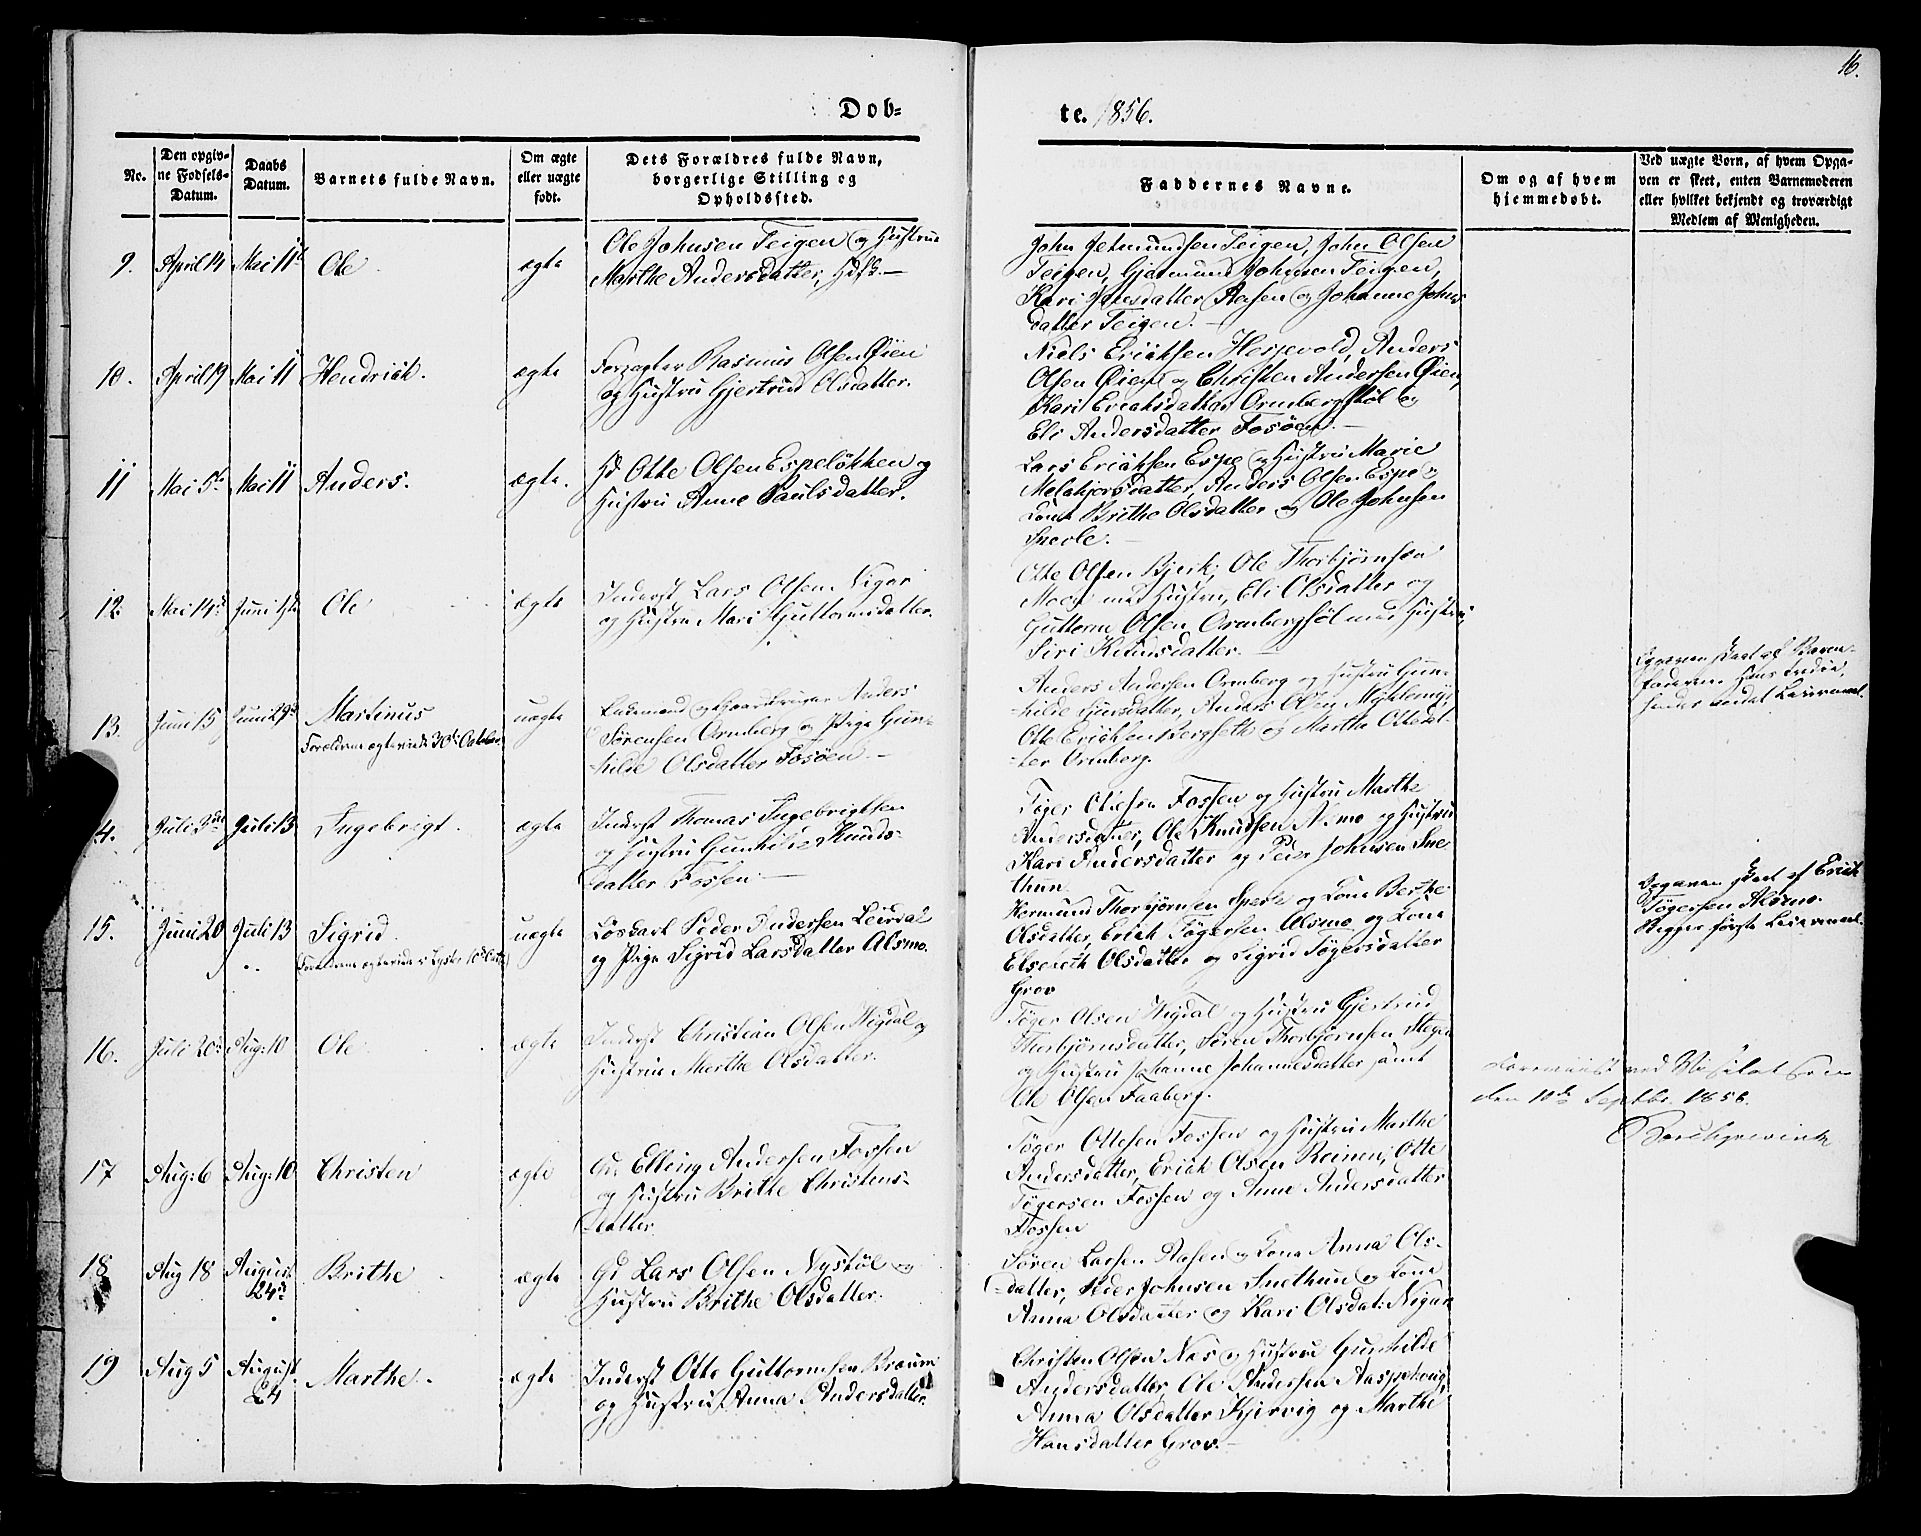 16.
Dob=
te. 1856.
No.
Den opgiv=
ne Fødsels=
Datum.
Daabs
Datum.
Barnets fulde Navn.
Om ægte
eller uægte
født.
Dets Forældres fulde Navn,
borgerlige Stilling og
Opholdssted.
Faddernes Navne.
Om og af hvem
hjemmedøbt.
Ved uægte Børn, af hvem Opga=
ven er skeet, enten Barnemoderen
eller hvilket bekjendt og troværdigt
Medlem af Menigheden.
9. April 14 Mai 11te Ole ægte
Ole Johnsen Teigen og Hustrue
Marthe Andersdatter,
John Jetmundsen Teigen, John Olsen
Teigen, Gjetmund Johnsen Teigen,
Kari Jensdatter Aasen og Johanne Johns
datter Teigen.
10. April 19 Mai 11 Hendrick. ægte
Forpagter Rasmus Olsen Øien
og Hustru Gjertrud Olsdatter.
Niels Ericksen Hesjevold, Anders
Olsen Øiene og Christen Andersen Øien,
Kari Ericksdatter Ormbergstøl og
Eli Andersdatter Fosøen.
11 Mai 5te Mai 11 Anders. ægte.
Otte Olsen Espeløkken og
Hustru Anne Paulsdatter.
Lars Ericksen Espe og Hustru Marie
Melchjorsdatter, Anders Olsen Espe og
Kone Brithe Olsdatter og Ole Johnsen
Sperle.
12. Mai 14de Juni 1ste Ole ægte
Inderst Lars Olsen Nigar
og Hustru Mari Guttormsdatter.
Otte Olsen Bjerk, Ole Thorbjørnsen
Moen med Hustru, Eli Olsdatter og
Guttorm Olsen Ormbergstøl med Hustru,
Siri datter.
13. Juni 15 Juni 29de Martinus uægte
Forældrene ægteviede 30te October
og Gaardbruger Anders
Sørensen Ormberg og Pige Gun=
hilde Olsdatter Fosøen.
Anders Andersen Ormberg og Hustru Gun=
hilde datter, Anders Olsen
Otte Ericksen Bergseth og Martha Ottesdat=
ter Ormberg.
Opgaven skeet af Barne=
faderen. Hans tredie,
hendes andet Leiermaal.
14. Juli 3die Juli 13 Ingebrigt. ægte
Inderst Thomas Ingebrigtsen
og Hustru Gunhilde Knuds=
datter Fossen.
Tøger Ottesen Fossen og Hustru Marthe
Andersdatter, Ole Knudsen Alsmo og Hustru
Kari Andersdatter og Peder Johnsen Sne=
thun.
15. Juni 20 Juli 13 Sigrid. uægte
Forældrene ægteviede i Lyster 10de
Løskarl Peder Andersen Leirdal
og Pige Sigrid Larsdatter Alsmo.
Hermund Thorbjørnsen Sperle og Kone Berthe
Olsdatter, Erick Tøgersen Alsmo og Kone
Elsebeth Olsdatter og Sigrid Tøgersdatter
Grov
Opgaven skeet af Erick
Tøgersen Alsmo.
Begges første Leiermaal.
16. Juli 20de Aug: 10 Ole ægte
Inderst Christian Olsen Vigdal og
Hustrue Marthe Olsdatter.
Tøger Olsen Vigdal og Hustru Gjertrud
Thorbjørnsdatter, Søren Thorbjørnsen Stegen
og Hustru Johanne Johannesdatter samt
Ole Olsen Faaberg.
Foreviist ved Visitatsen
den 10de Septbr. 1856.
17 Aug: 6 Aug: 10 Christen ægte
Elling Andersen Fossen
og Hustru Brithe Christens=
datter.
Tøger Ottesen Fossen og Hustru Marthe
Andersdatter, Erick Olsen Reinen, Otte
Tøgersen Fossen og Anne Andersdatter
Fossen
18 Aug 18 August 24de Brithe ægte
Lars Olsen Nystøl og
Hustru Brithe Olsdatter.
Søren Larsen Aasen og Kone Anna Ols=
datter, Peder Johnsen Snethun og Kone
Anna Olsdatter og Kari Olsdat: Nigar
19 Aug 5 August 24 Marthe. ægte
Inderst Otte Guttormsen Bræum
og Hustru Anna Andersdatter.
Christen Olsen Næs og Hustru Gunhilde
Andersdatter, Ole Andersen
Anna Olsdatter Kjervig og Marthe
Hansdatter Grov.